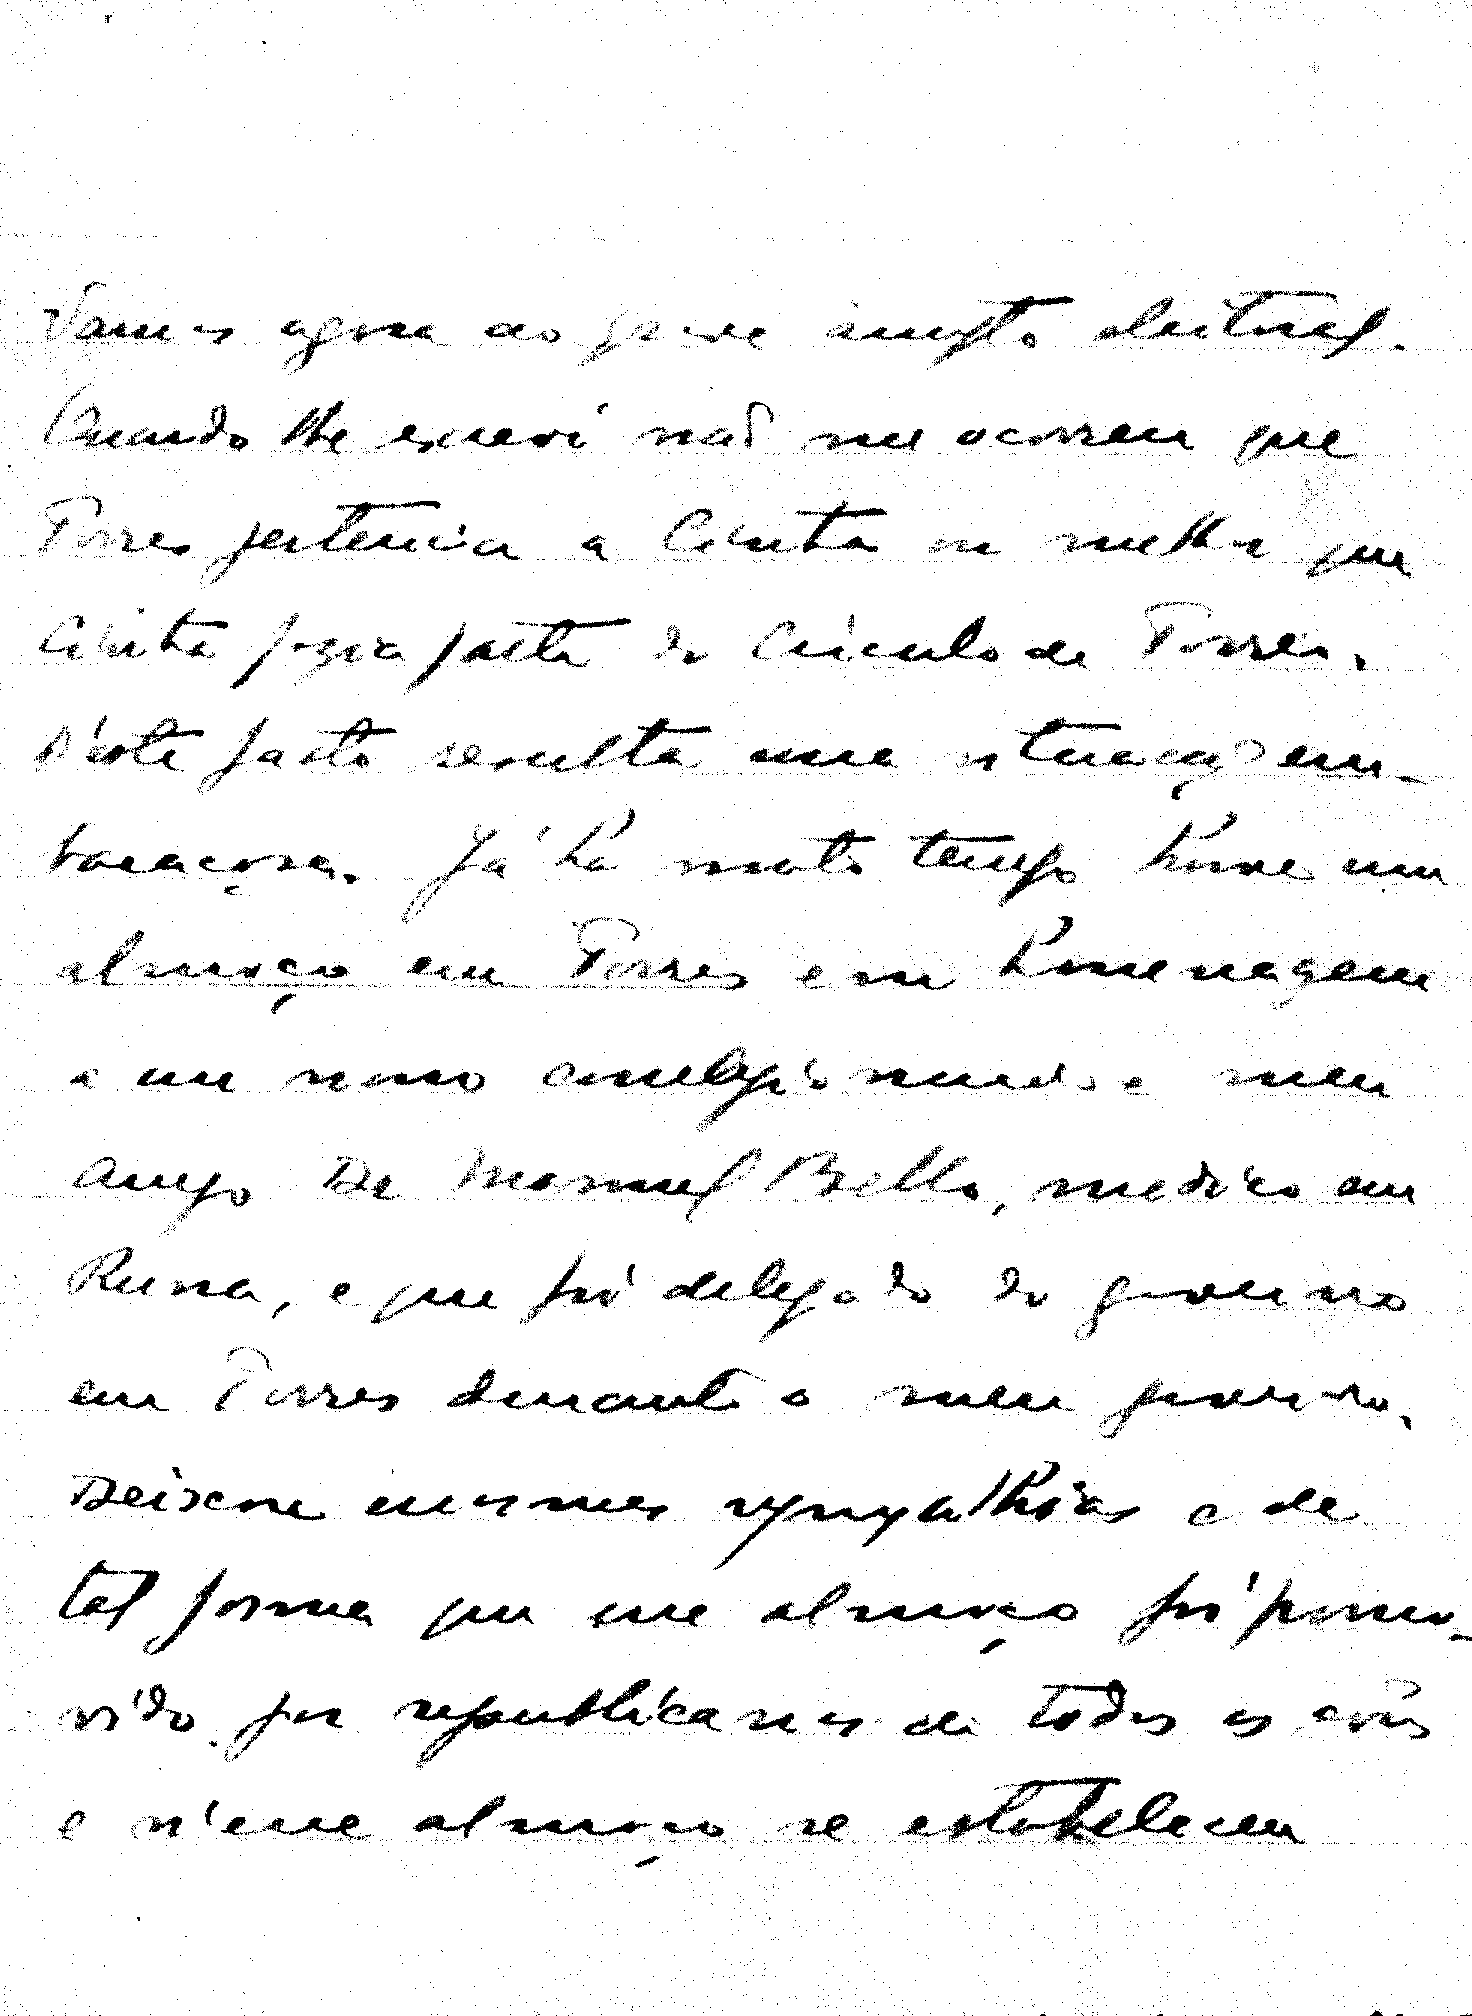 Vamos agora ao grave assumpto eleitoral.
Quando lhe escrevi não me ocorreu que
Torres pertencia a Cintra ou melhor que
Cintra fazia parte do Circulo de Torres.
D'este facto resulta uma situação em-
baraçosa. Já ha muito tempo houve um
almoço em Torres em homenagem
a um nosso correligionario e meu
amigo Dr Manuel Bello, medico em
Runa, e que foi delegado do governo
em Torres durante o meu governo.
Deixou enormes sympathias e de
tal forma que esse almoço foi promo-
vido por republicanos de todas as côres
e n'esse almoço se estabeleceu